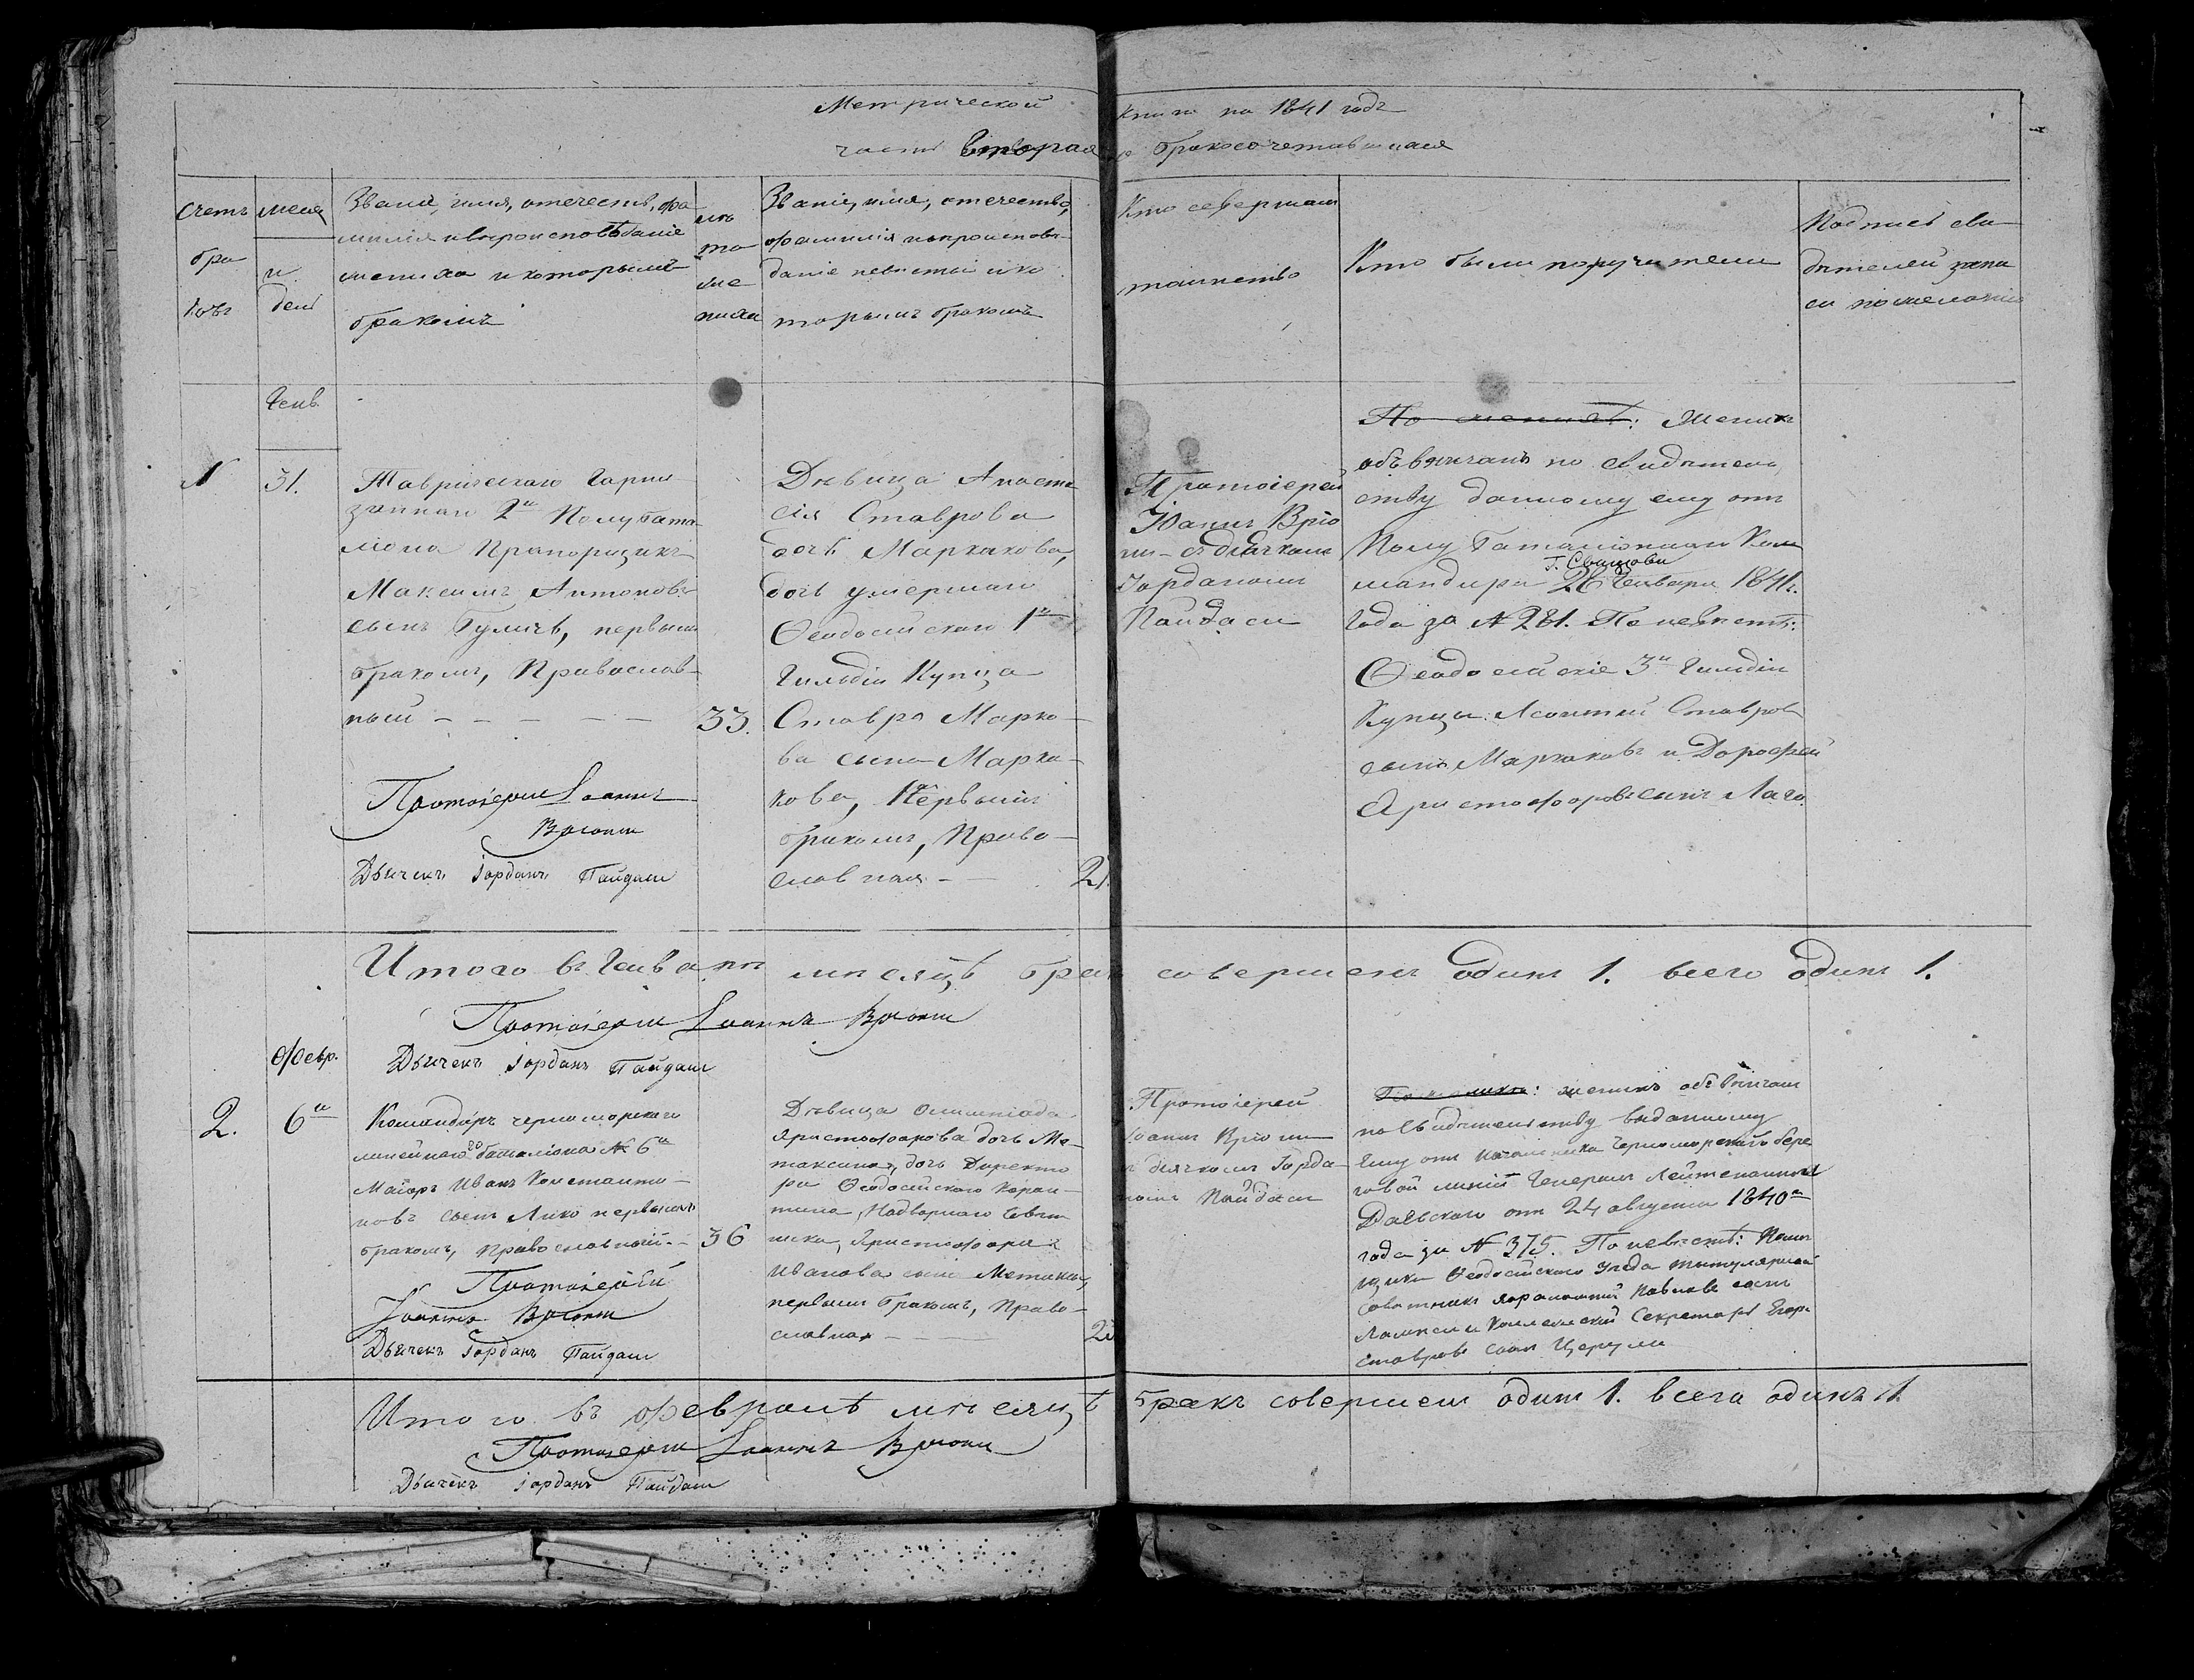 Метрической книги на 1841 годъ
часть вторая о бракосочетавшихся
Счетъ
бра
ковъ
месяц
и
день
Званіе, имя, отечество, фа
милія и вероисповѣданіе
жениха и которымъ
бракомъ
лѣ
та
же
ниха
Званіе, имя, отечество,
фамилія и вѣроисповѣ-
даніе невѣсты и ко
торымъ бракомъ
Кто совершалъ
таинство
Кто были поручители
Подпись сви
дѣтелей запи
си по желанію
Генв.
1
31.
Таврическаго Гарни
зоннаго 2го Полубата
ліона Прапорщикъ
Максимъ Антоновъ
сынъ Гуличъ, первымъ
бракомъ, Православ-
ный
33.
Протоіерей Іоаннъ
Вріони
Дьячекъ Іорданъ Пайдаси
Дѣвица Анаста
сія Ставрова
дочь Маркакова,
дочь умершаго
Ѳеодосійскаго 1й
Гильдіи Купца
Ставра Марко
ва сына Марка-
кова, Первымъ
бракомъ, Право-
славная
21.
Протоіерей
Іоаннъ Вріо
ни съ дьячкомъ
Іорданомъ
Пайдаси
По женихѣ: Женихъ
обвѣнчанъ по свидѣтель
ству данному ему отъ
Полубаталіоннаго Ком
мандира 26 Генваря 1841.
года за № 281. По невѣстѣ:
Ѳеодосійскіе 3й Гильдіи
Купцы: Леонтій Ставровъ
сынъ Маркаковъ и Дорофей
Аристофоровъ сынъ Лаго.
Итого въ Генварѣ мѣсяцѣ бракъ совершенъ одинъ 1. всего одинъ 1.
Протоіерей Іоаннъ Вріони
Дьячекъ Іорданъ Пайдаси
Февр.
2.
6го
Командиръ черноморскаго
линейнаго баталіона № 6го
Маіоръ Иванъ Константи-
новъ сынъ Лико первымъ
бракомъ, православный.
36
Протоіерей
Іоаннъ Вріони
Дьячекъ Іорданъ Пайдаси
Дѣвица Олимпіада
Аристофорова дочь Ме-
таксина, дочь Директо
ра Ѳеодосійскаго Каран-
тина, Надворнаго Совѣт
ника, Аристофора
Иванова сына Метаксы,
первымъ бракомъ, Право-
славная
Протоіерей
Іоаннъ Вріони
съ дьячкомъ Іорда-
номъ Пайдаси
женихъ обвѣнчанъ
по свидѣтельству выданному
ему отъ начальника Черноморской бере
говой линіи Генералъ Лейтенанта
Раевскаго отъ 24 августа 1840го
года за № 375. По невѣстѣ: Помѣ
щики Ѳеодосійскаго Уѣзда титулярный
Совѣтникъ Харалампій Павловъ сынъ
Лампси и Коллежскій Секретарь Егоръ
Ставровъ сынъ Церули
Итого въ февралѣ мѣсяцѣ бракъ совершенъ одинъ 1. всего одинъ 1.
Протоіерей Іоаннъ Вріони
Дьячекъ Іорданъ Пайдаси